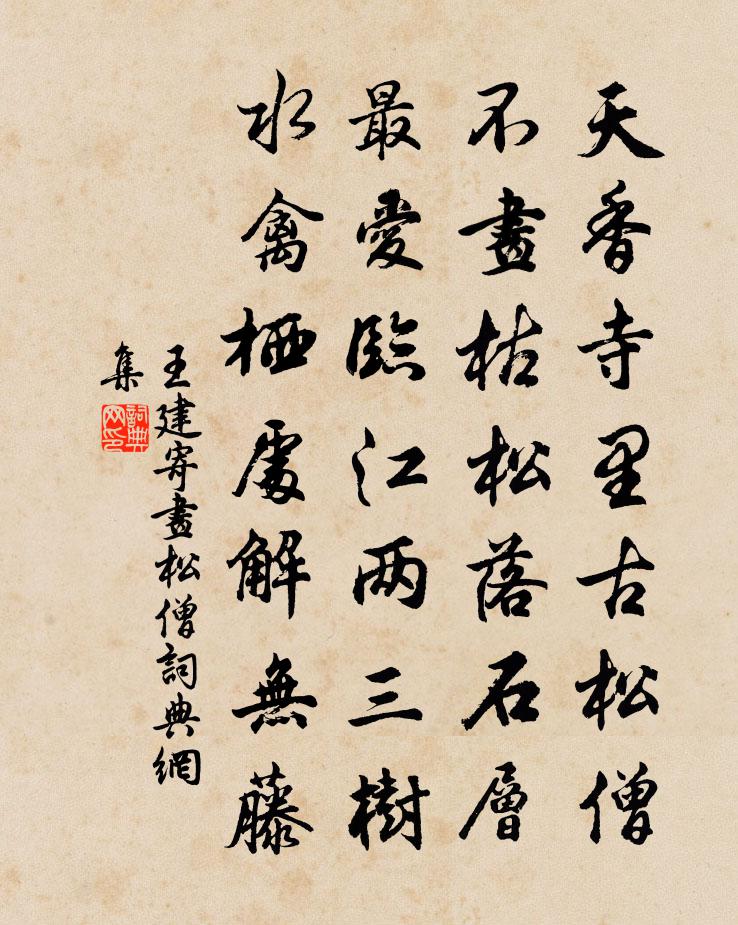 天香寺里古松僧
不畫枯松落石層
最愛臨江两三樹
水禽栖處解無藤
王建寄畫松僧詞典網
集
詞典
网印